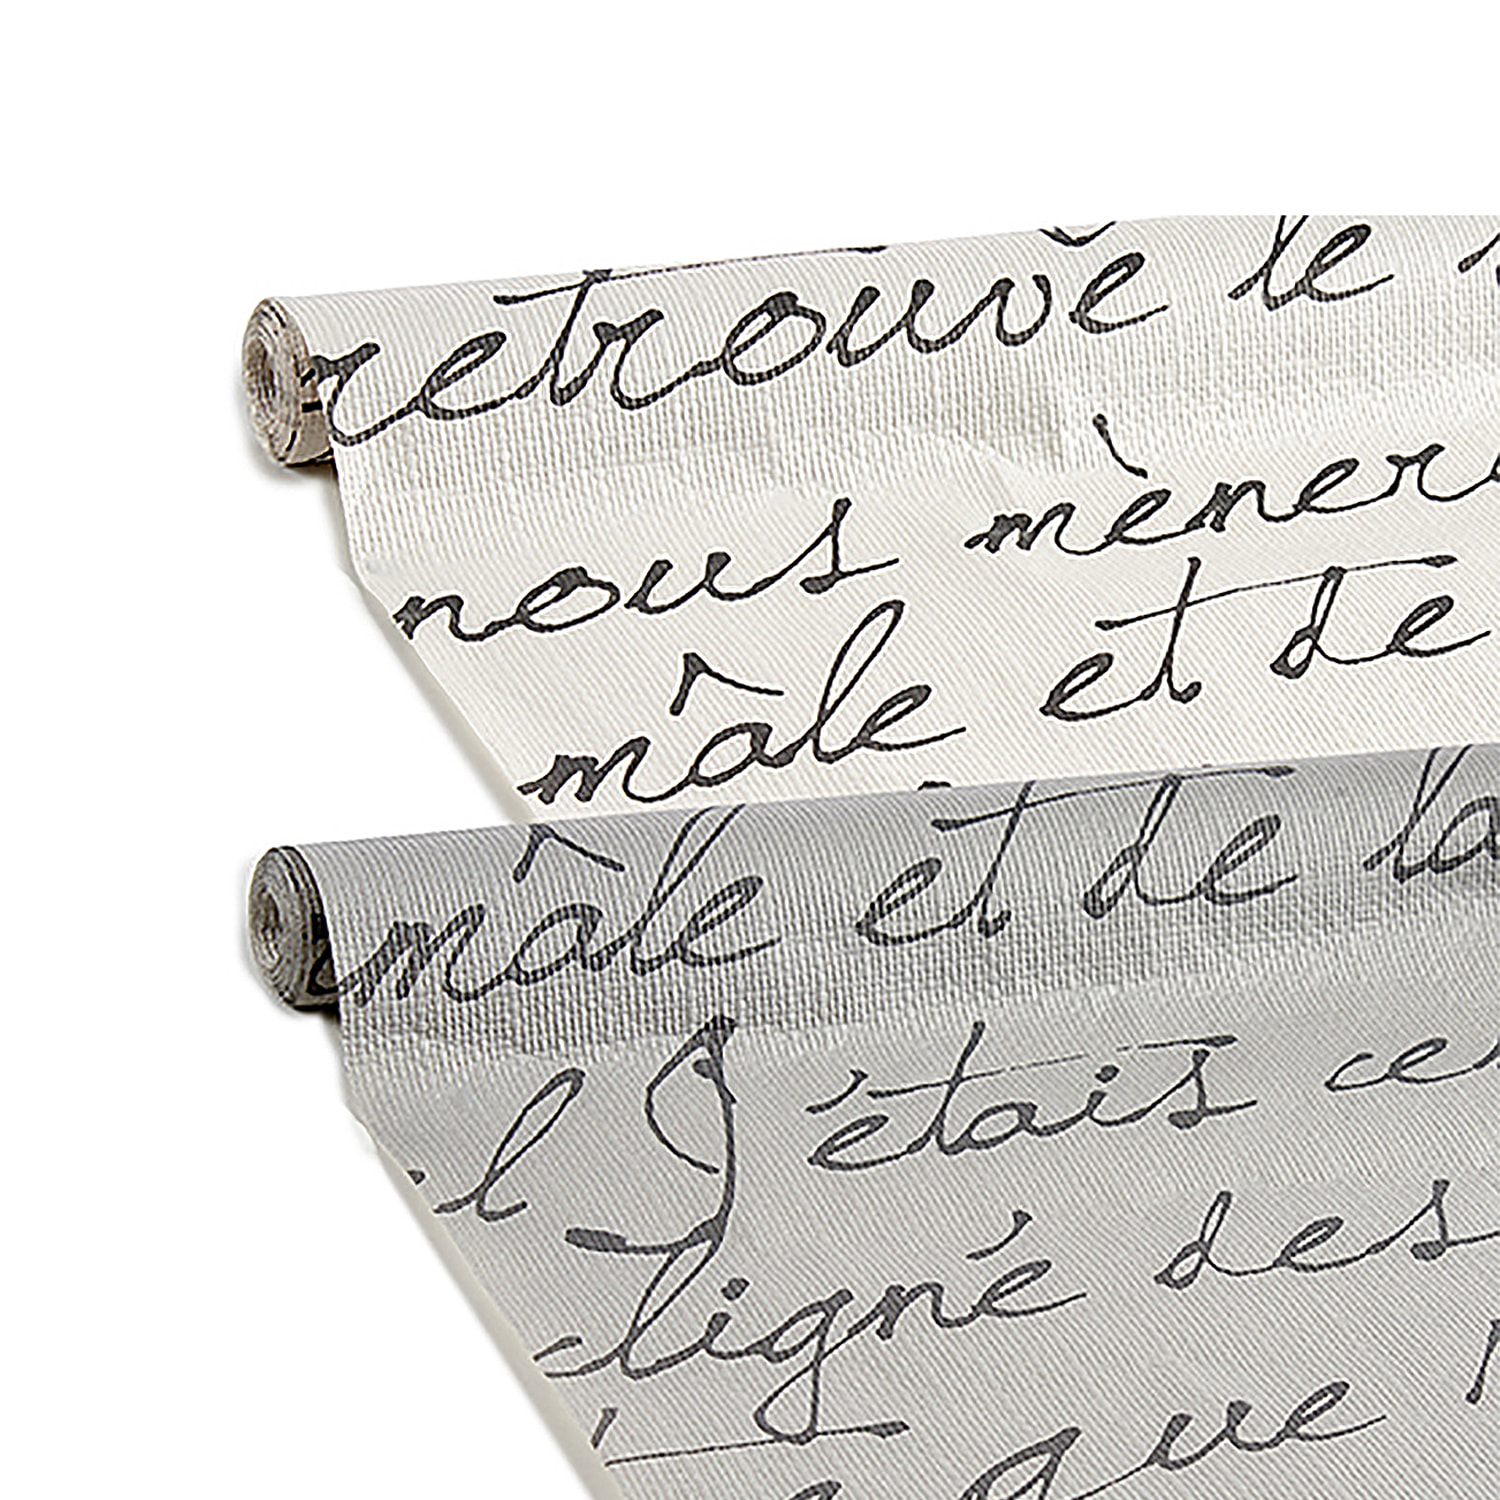 retrouvé le
nous mèner
mâle et de
mâle et de la
l J'étais ce
ligné des
que